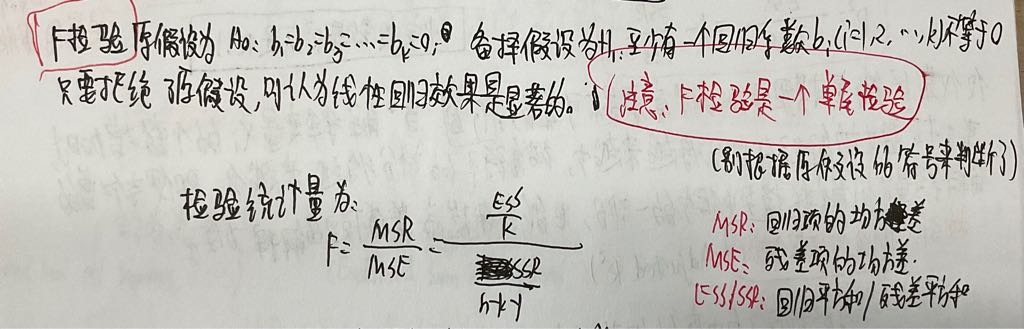 F检验 原假设为 H₀: b₁=b₂=b₃=…=bₖ=0, 备择假设为H₁:至少有一个回归系数bᵢ(i=1,2,…,k)不等于0
只要拒绝了原假设,则认为线性回归效果是显著的。
注意: F检验是一个单尾检验
(别根据原假设的符号来判断了)
检验统计量为:
F= MSR/MSE = (ESS/k)/(SSR/(n-k-1))
MSR: 回归项的均方差
MSE: 残差项的均方差.
ESS/SSR: 回归平方和/残差平方和